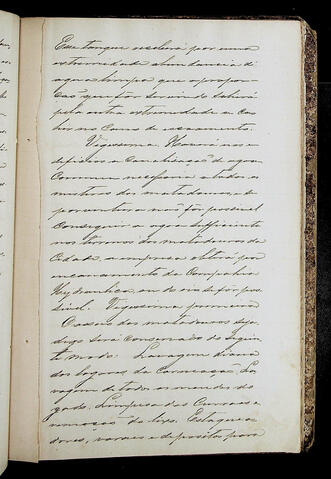 Esse tanque receberá por uma
extremidade abundancia d'
agua limpa que a propor-
ção que fôr servindo sahirá
pela outra extremidade e ca-
hirá no Canno de esgotamento.
Vigesima Haverá nos e-
dificios a Canalisação d'agua
Commum necessaria a todos os
misteres dos matadouros, e se
porventura não fôr possivel
Conseguir a agua sufficiente
nos terrenos dos matadouros da
Cidade, a empresa obterá por
encanamento da Companhia
Hydraulica ou do rio se fôr pos-
sivel. Vigesima primeira
O asseio dos matadouros
será Conservado do seguin-
te modo: Lavagem diaria
dos logares da Carneação. La-
vagem de todo o
gado. Limpesa dos Curraes e
remoção do lixo. Estaquea-
dores, varaes e depositos para